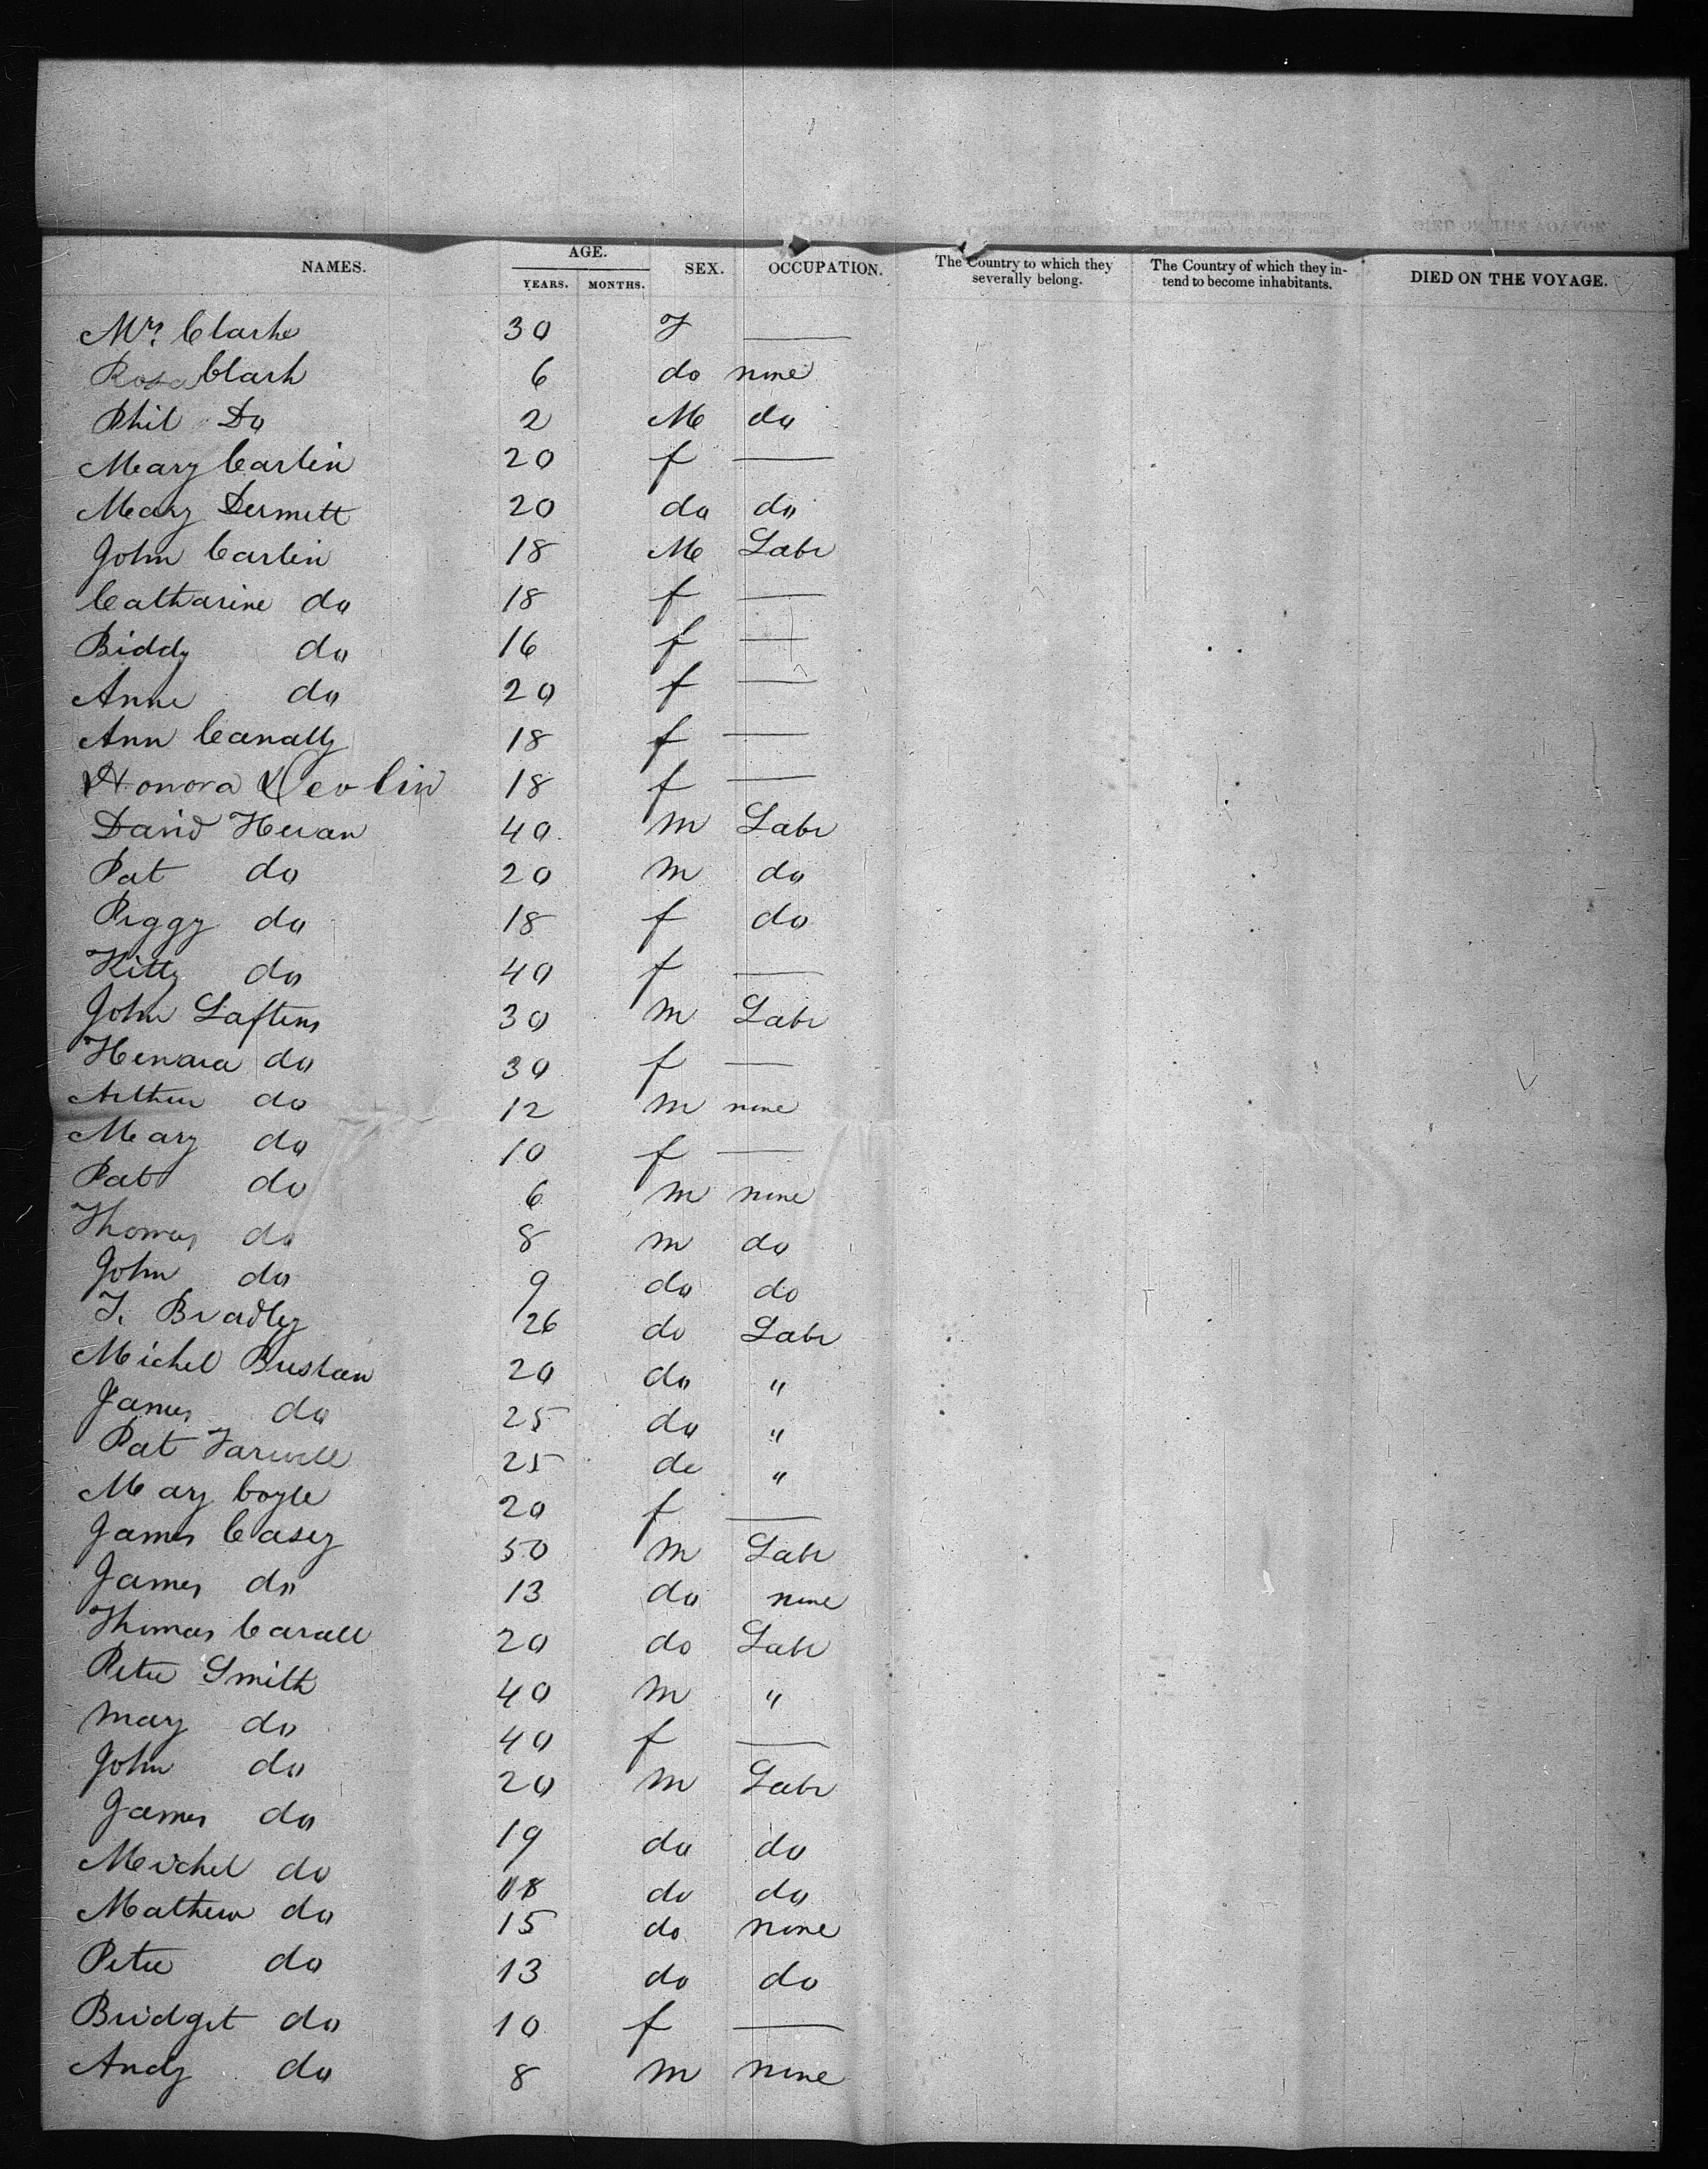 NAMES. AGE. YEARS. MONTHS. SEX. OCCUPATION. The Country to which they severally belong. The Country of which they intend to become inhabitants. DIED ON THE VOYAGE.
Mrs Clarke 30 F —
Rosa Clark 6 do none
Phil Do 2 M do
Mary Carlin 20 f —
Mary Dermett 20 do do
John Carlin 18 M Labr
Catharine do 18 f —
Biddy do 16 f —
Anne do 20 f —
Ann Canally 18 f —
Honora Devlin 18 f —
David Heran 40 m Labr
Pat do 20 m do
Peggy do 18 f do
Kitty do 40 f —
John Laftens 30 m Labr
Henora do 30 f —
Arthur do 12 m none
Mary do 10 f —
Pat do 6 m none
Thomas do 8 m do
John do 9 do do
T. Bradley 26 do Labr
Michel 20 do "
James do 25 do "
Pat Farwell 25 do "
Mary Coyle 20 f —
James Casey 50 m Labr
James do 13 do none
Thomas Carall 20 do Labr
Peter Smith 40 m "
Mary do 40 f —
John do 20 m Labr
James do 19 do do
Michel do 18 do do
Mathew do 15 do none
Peter do 13 do do
Bridget do 10 f —
Andy do 8 m none